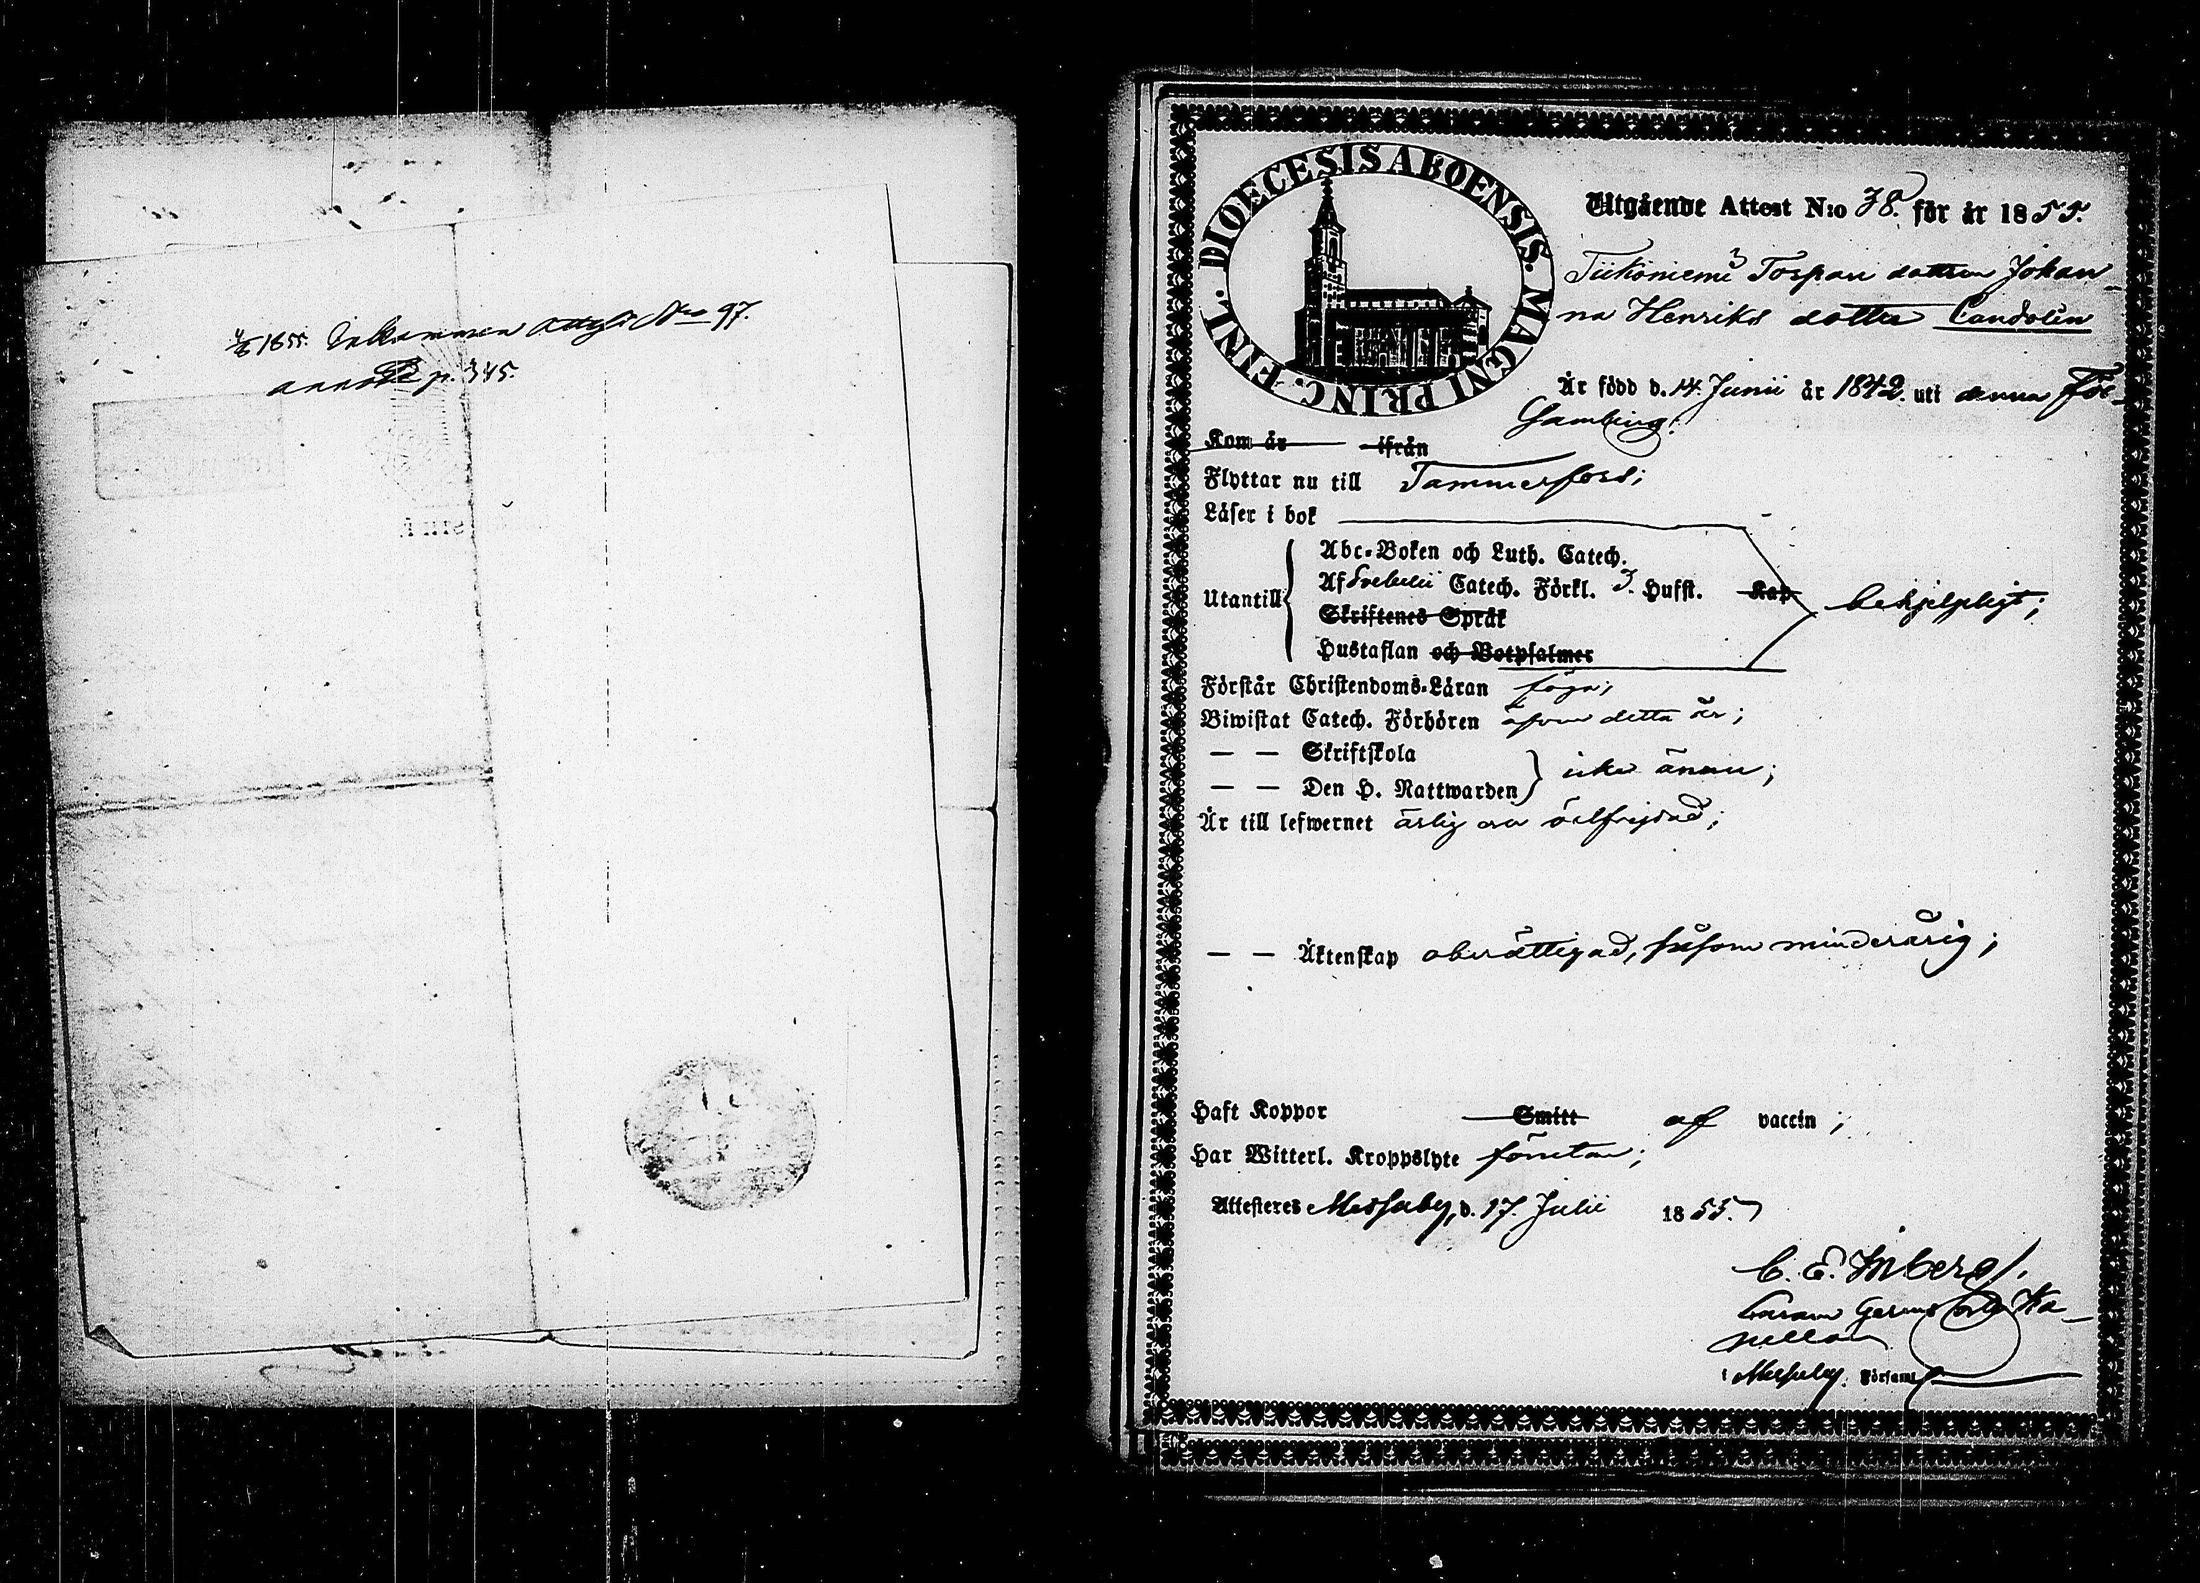 1855. Inkommen Attest No 97.
annot p. 345.
DIOECESIS ABOENSIS. MAGNI PRINC. FINL.
Utgående Attest N:o 38. för år 1855.
Torpare dottren Johan-
na Henriks dotter Candolin
Är född d. 14. Junii år 1842. uti denna För-
samling.
Kom år ifrån
Flyttar nu till Tammerfors;
Läser i bok
Abc-Boken och Luth. Catech.
Utantill Af Svebelii Catech. Förkl. 3. Hufst. Kap behjelpligt;
Skriftenes Språk
Hustaflan och Botpsalmer
Förstår Christendoms-Läran föga;
Biwistat Catech. Förhören äfven detta år;
— — Skriftskola
— — Den H. Nattwarden icke ännu;
Är till lefwernet ärlig och välfrejdad;
— — Äktenskap oberättigad, såsom minderårig;
Haft Koppor Smitt af vaccin;
Har Witterl. Kroppslyte
Attesteres Messuby, d. 17. Julii 1855.
C. E. Inberg.
Ka-
pellan
i Messuby. Församl.